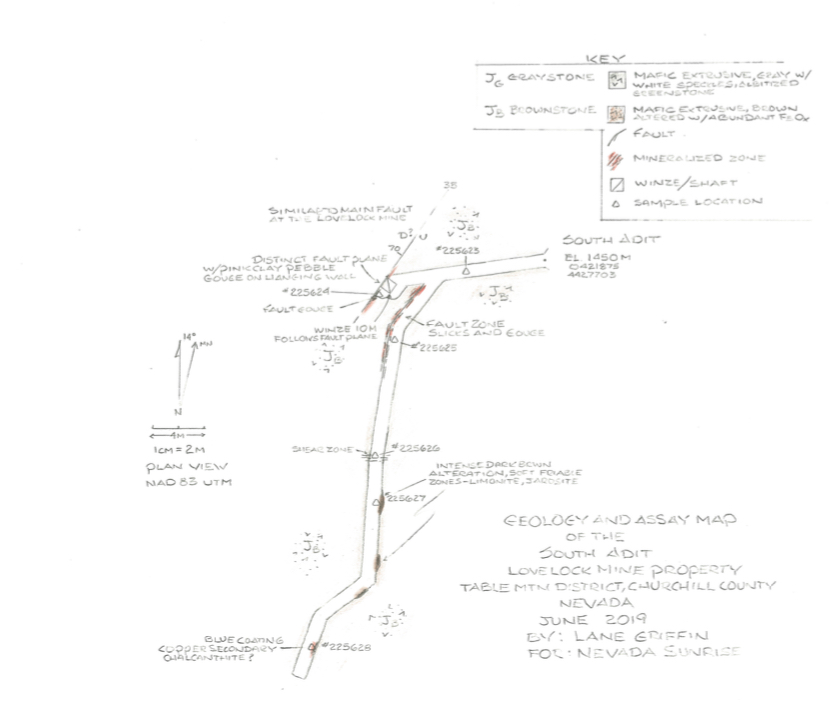 KEY
JG GRAYSTONE
MAFIC EXTRUSIVE, GRAY W/
WHITE SPECKLES, ALBITIZED
GREENSTONE
JB BROWNSTONE
MAFIC EXTRUSIVE, BROWN
ALTERED W/ABUNDANT FeOx
FAULT
MINERALIZED ZONE
WINZE/SHAFT
SAMPLE LOCATION
38
SIMILAR TO MAIN FAULT
AT THE LOVELOCK MINE
JB
D? U
70
#225623
SOUTH ADIT
EL 1450M
0421875
4427703
DISTINCT FAULT PLANE
W/PINK CLAY PEBBLE
GOUGE ON HANGING WALL
#225624
FAULT GOUGE
JB
WINZE 10M
FOLLOWS FAULT PLANE
FAULT ZONE
SLICKS AND GOUGE
#225625
JB
14°
MN
N
4M
1CM = 2M
PLAN VIEW
NAD 83 UTM
SHEAR ZONE
#225626
INTENSE DARK BROWN
ALTERATION, SOFT FRIABLE
ZONES-LIMONITE, JAROSITE
#225627
JB
GEOLOGY AND ASSAY MAP
OF THE
SOUTH ADIT
LOVELOCK MINE PROPERTY
TABLE MTN DISTRICT, CHURCHILL COUNTY
NEVADA
JUNE 2019
BY: LANE GRIFFIN
FOR: NEVADA SUNRISE
JB
BLUE COATING
COPPER SECONDARY
CHALCANTHITE?
#225628